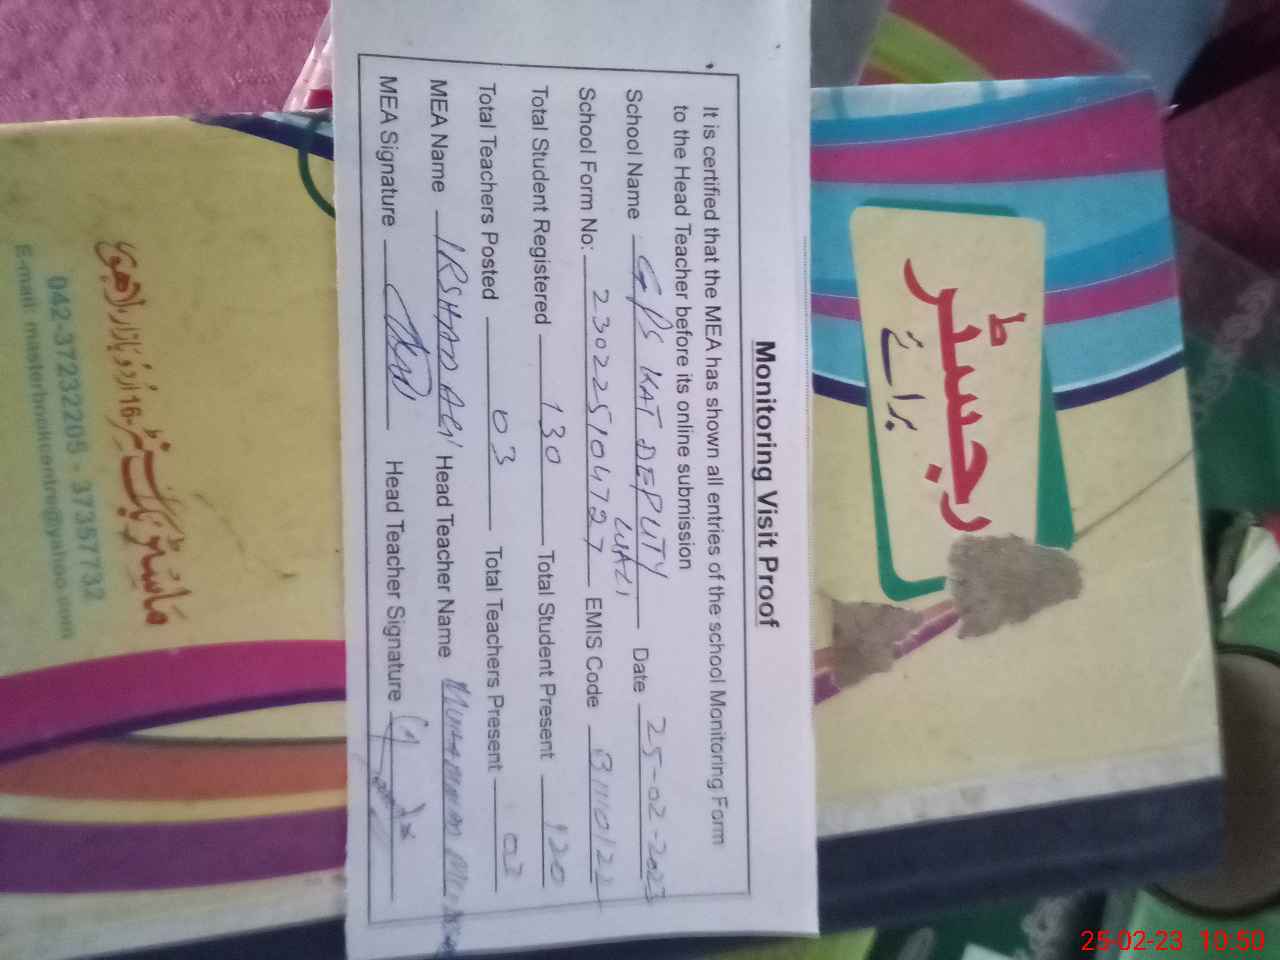 Monitoring Visit Proof
It is certified that the MEA has shown all entries of the school Monitoring Form
to the Head Teacher before its online submission
School Name GPS KAT DEPUTY WALI Date 25-02-2023
School Form No: 23022510472 7 EMIS Code 31110122
Total Student Registered 130 Total Student Present 120
Total Teachers Posted 03 Total Teachers Present 03
MEA Name IRSHAD ALI Head Teacher Name MUHAMMAD
MEA Signature Head Teacher Signature
رجسٹر
برائے
ماسٹر بک سنٹر 16-اردو بازار، لاہور
042-37232205 - 37357732
E-mail: masterbookcentre@yahoo.com
25-02-23 10:50